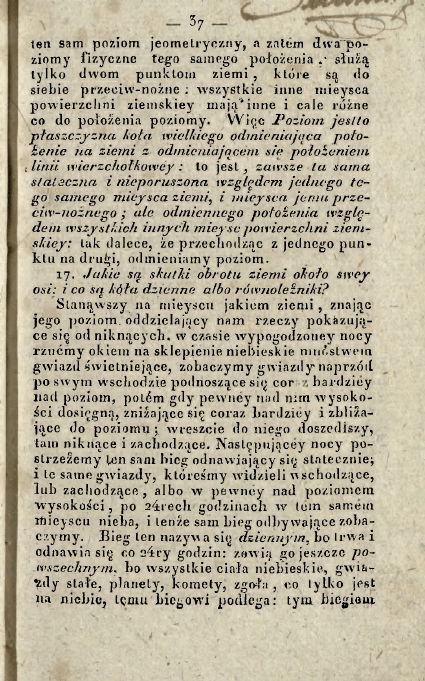 — 37 —
ten sam poziom jeometryczny, a zatém dwa po-
ziomy fizyczne tego samego położenia, służą
tylko dwom punktom ziemi, które są do
siebie przeciw-nożne: wszystkie inne mieysca
powierzchni ziemskiey mają inne i cale różne
co do położenia poziomy. Więc Poziom jestto
płaszczyzna koła wielkiego odmieniająca poło-
żenie na ziemi z odmieniającém się położeniem
linii wierzchołkowéy: to jest, zawsze ta sama
stateczna i nieporuszona względem jednego te-
go samego mieysca ziemi, i mieysca jemu prze-
ciw-nożnego; ale odmiennego położenia wzglę-
dem wszystkich innych mieysc powierzchni ziem-
skiey: tak dalece, że przechodząc z jednego pun-
ktu na drugi, odmieniamy poziom.
17. Jakie są skutki obrotu ziemi około swey
osi: i co są kóła dzienne albo równoleżniki?
Stanąwszy na mieyscu jakiem ziemi, znając
jego poziom oddzielający nam rzeczy pokazują-
ce się od niknących, w czasie wypogodzoney nocy
rzućmy okiem na sklepienie niebieskie mnóstwem
gwiazd świetniejące, zobaczymy gwiazdy naprzód
po swym wschodzie podnoszące się coraz bardziéy
nad poziom, potém gdy pewnéy nad nim wysoko-
ści dosięgną, zniżające się coraz bardziéy i zbliża-
jące do poziomu; wreszcie do niego doszedłszy,
tam niknące i zachodzące. Następującéy nocy po-
strzeżemy ten sam bieg odnawiający się statecznie;
i te same gwiazdy, któreśmy widzieli wschodzące,
lub zachodzące, albo w pewnéy nad poziomem
wysokości, po 24rech godzinach w tém samém
mieyscu nieba, i tenże sam bieg odbywające zoba-
czymy. Bieg ten nazywa się dziennym, bo trwa i
odnawia się co 24ry godzin: zowią go jeszcze po-
wszechnym, bo wszystkie ciała niebieskie, gwia-
zdy stałe, planety, komety, zgoła, co tylko jest
na niebie, temu biegowi podlega: tym biegiem